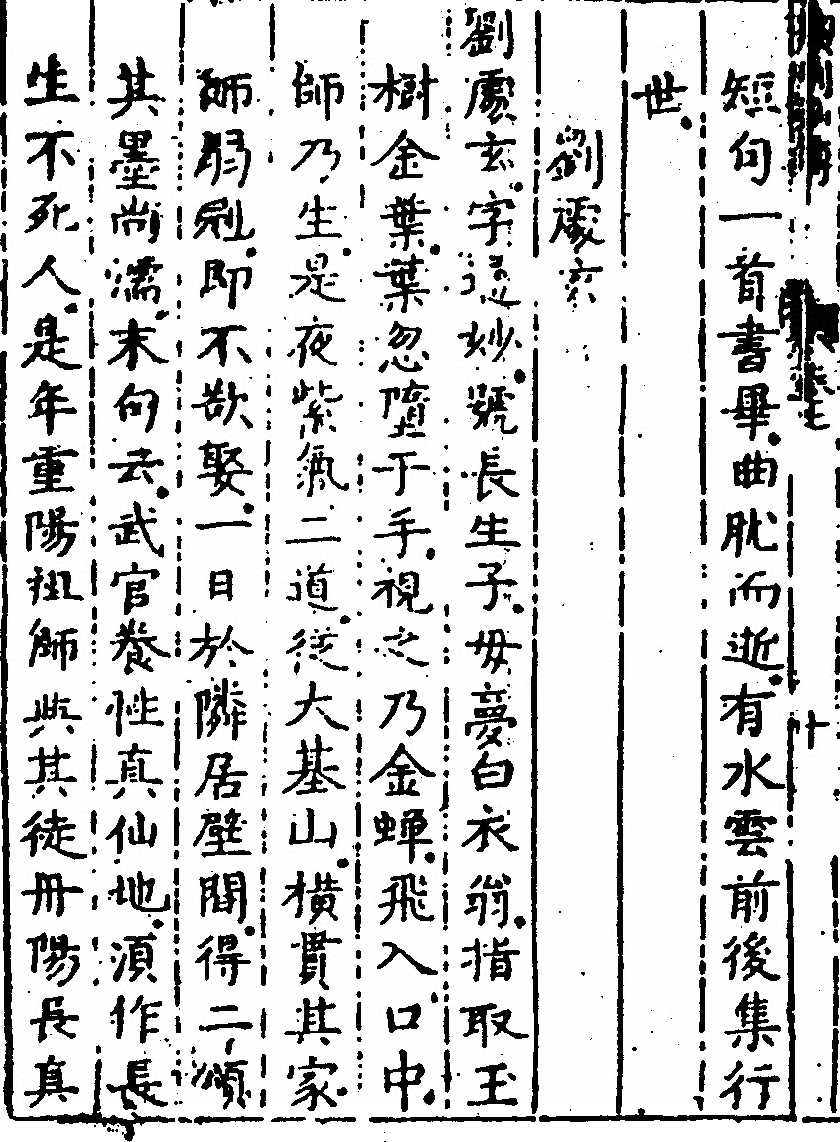 短句一首書畢曲肱而逝有水雲前後集行
世
劉處玄
劉處玄字通妙號長生子母夢白衣翁指取玉
樹金葉葉忽墮于手視之乃金蟬飛入口中
師乃生是夜紫氣二道從大基山橫貫其家
師弱冠即不欲娶一日於隣居壁間得二頌
其墨尚濡末句云武官養性真仙地湏作長
生不死人是年重陽祖師與其徒丹陽長真
十